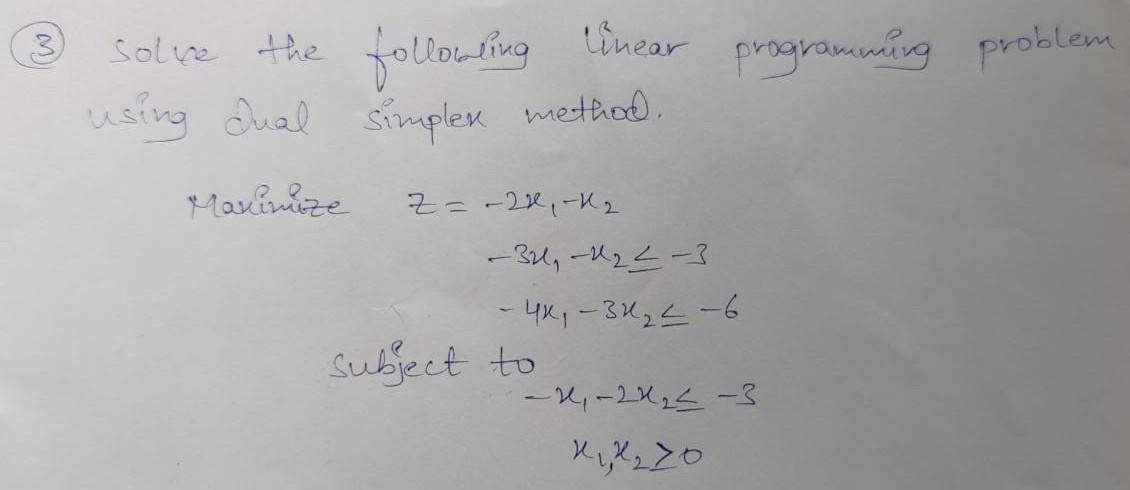 ③ Solve the following linear programming problem
using dual simplex method.
Maximize Z = -2x₁ -x₂
-3x₁ -x₂ ≤ -3
-4x₁ -3x₂ ≤ -6
Subject to
-x₁ -2x₂ ≤ -3
x₁,x₂ ≥0